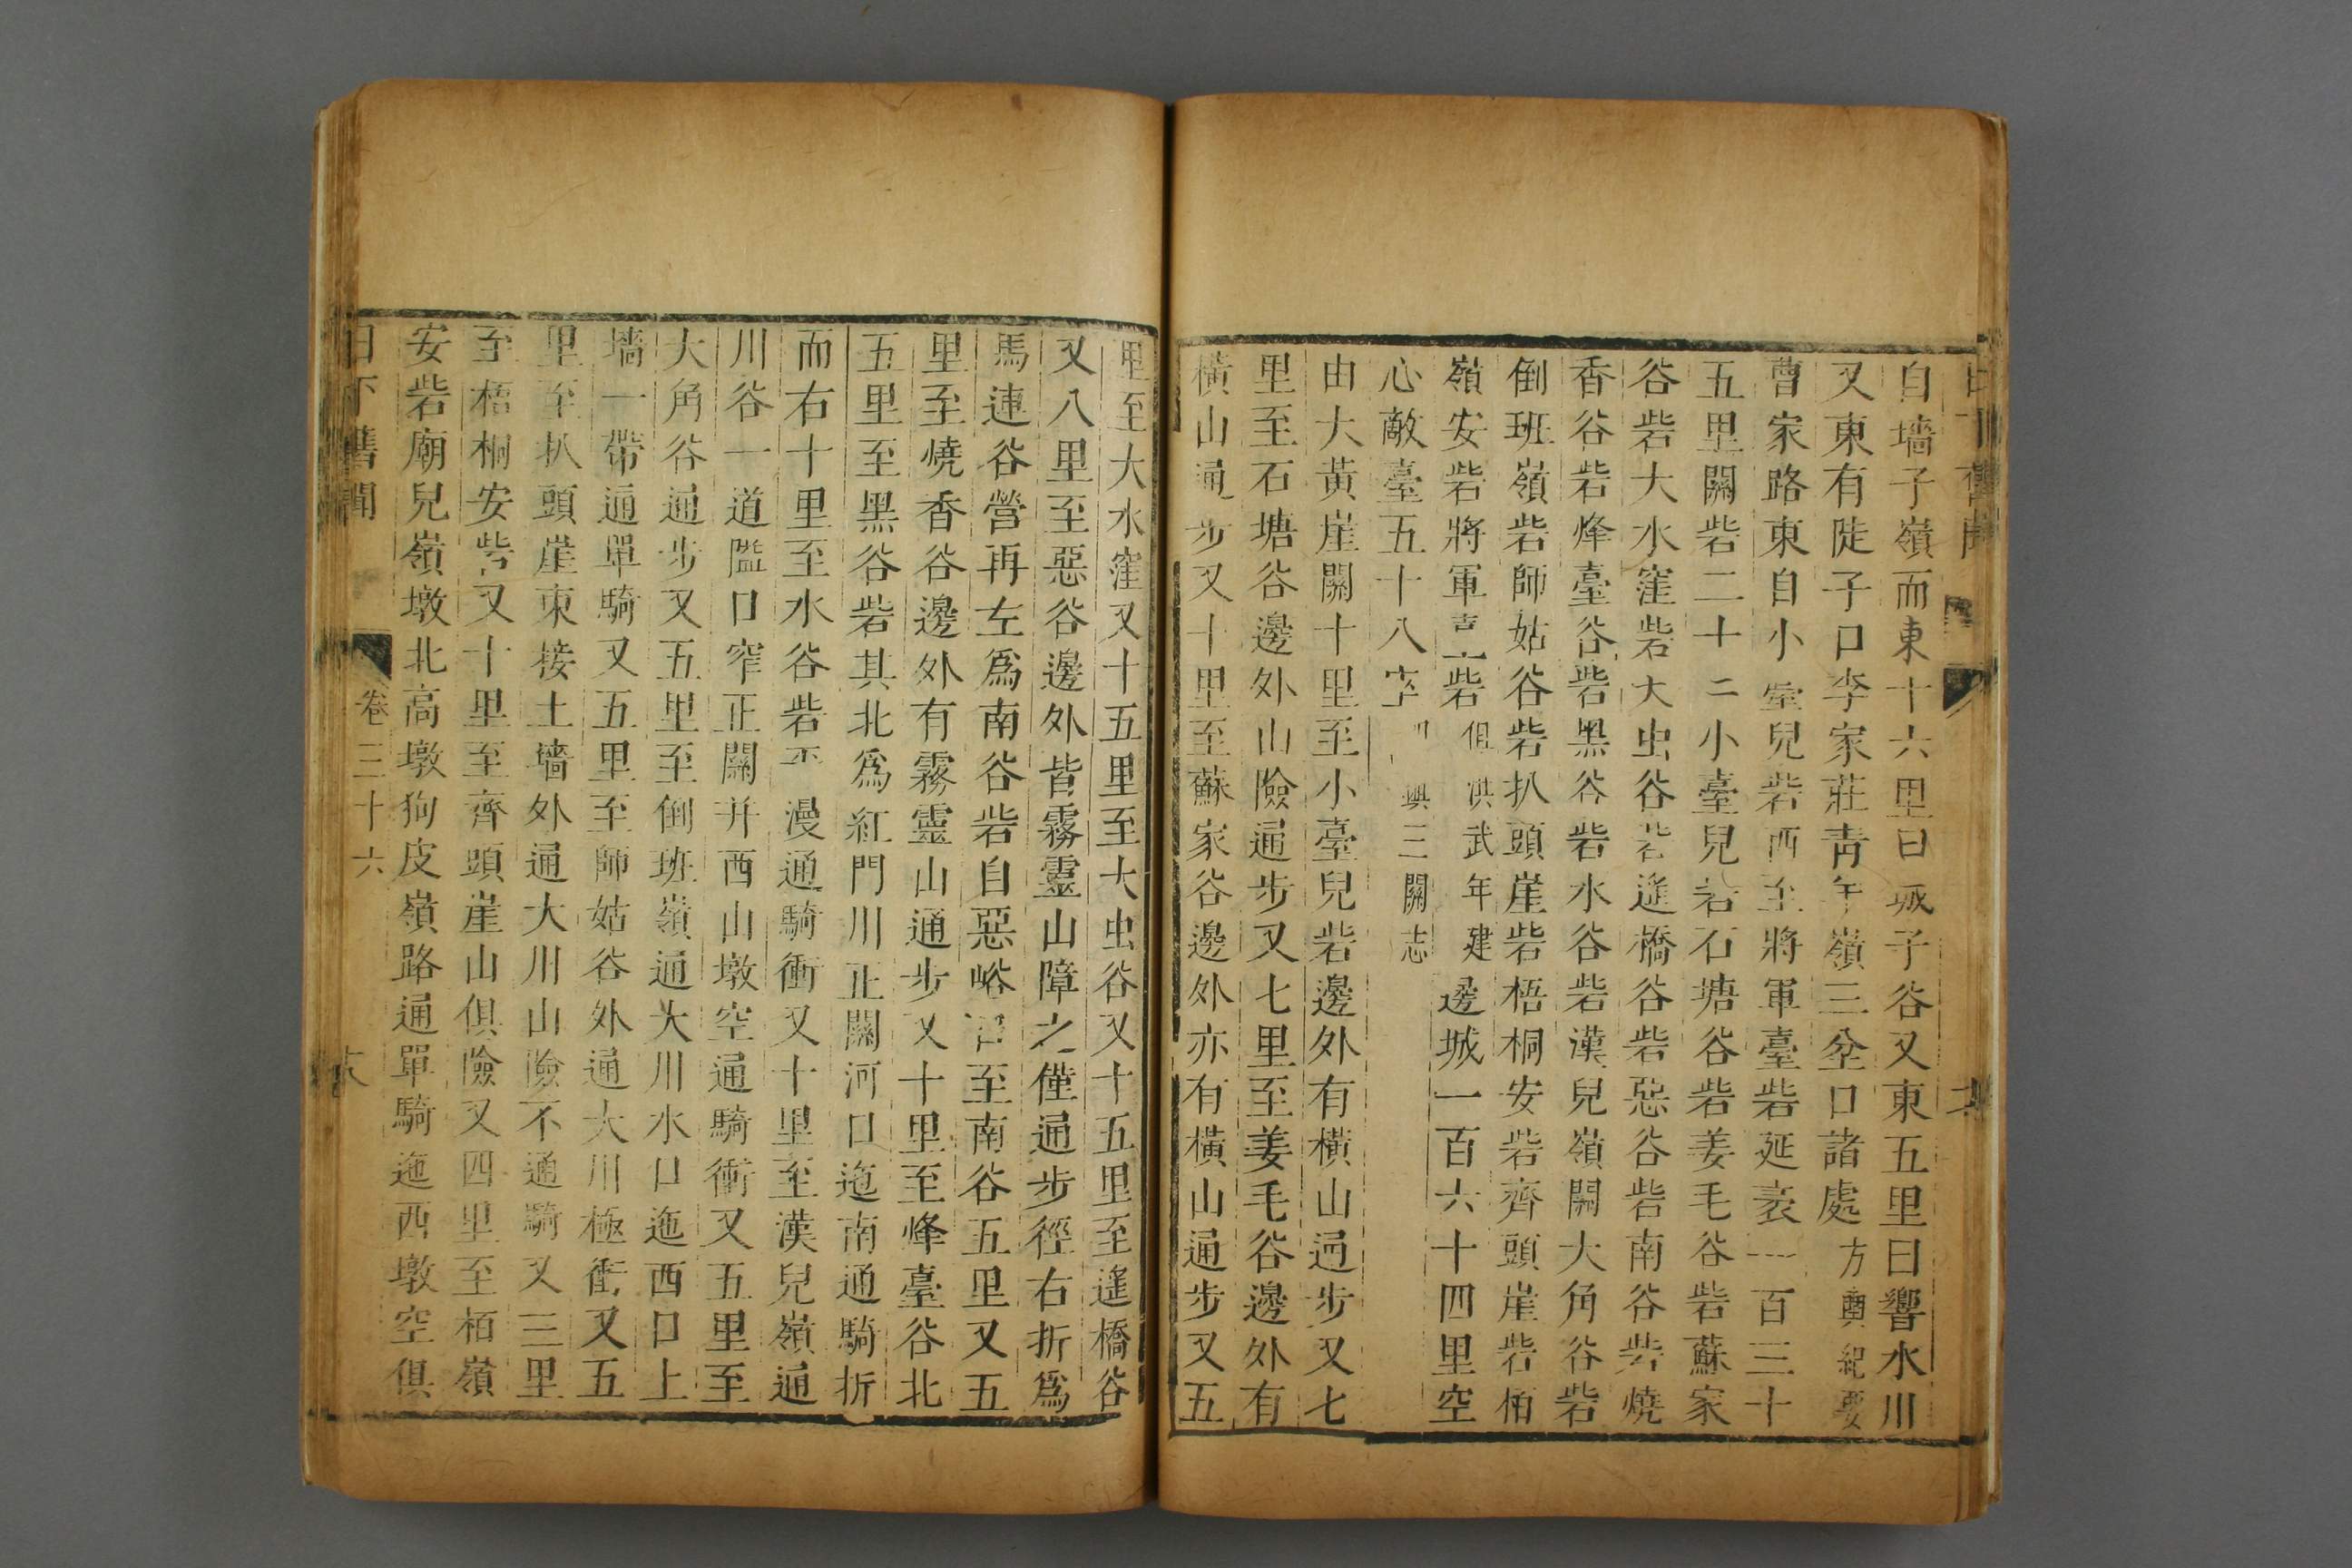 自墻子嶺而東十六里曰城子谷又東五里曰響水川
又東有陡子口李家莊青嶺三岔口諸處方輿紀要
曹家路東自小臺兒砦西至將軍臺砦延袤一百三十
五里關砦二十二小臺兒砦石塘谷砦姜毛谷砦蘇家
谷砦大水窪砦大虫谷砦遙橋谷砦惡谷砦南谷砦燒
香谷砦烽臺谷砦黑谷砦水谷砦漢兒嶺關大角谷砦
倒班嶺砦師姑谷砦扒頭崖砦梧桐安砦齊頭崖砦栢
嶺安砦將軍臺砦俱洪武年建邊城一百六十四里空
心敵臺五十八座四鎮三關志
由大黃崖關十里至小臺兒砦邊外有橫山通步又七
里至石塘谷邊外山險通步又七里至姜毛谷邊外有
橫山通步又十里至蘇家谷邊外亦有橫山通步又五
里至大水窪又十五里至大虫谷又十五里至遙橋谷
又八里至惡谷邊外皆霧靈山障之僅通步徑右折爲
馬連谷營再左爲南谷砦自惡峪砦至南谷五里又五
里至燒香谷邊外有霧靈山通步又十里至烽臺谷北
五里至黑谷砦其北爲紅門川正關河口迤南通騎折
而右十里至水谷砦平漫通騎衝又十里至漢兒嶺通
川谷一道隘口窄正關并西山墩空通騎衝又五里至
大角谷通步又五里至倒班嶺通大川水口迤西口上
墻一帶通單騎又五里至師姑谷外通大川極衝又五
里至扒頭崖東接土墻外通大川山險不通騎又三里
至梧桐安砦又十里至齊頭崖山俱險又四里至栢嶺
安砦廟兒嶺墩北高墩狗皮嶺路通單騎迤西墩空俱
日下舊聞 卷三十六